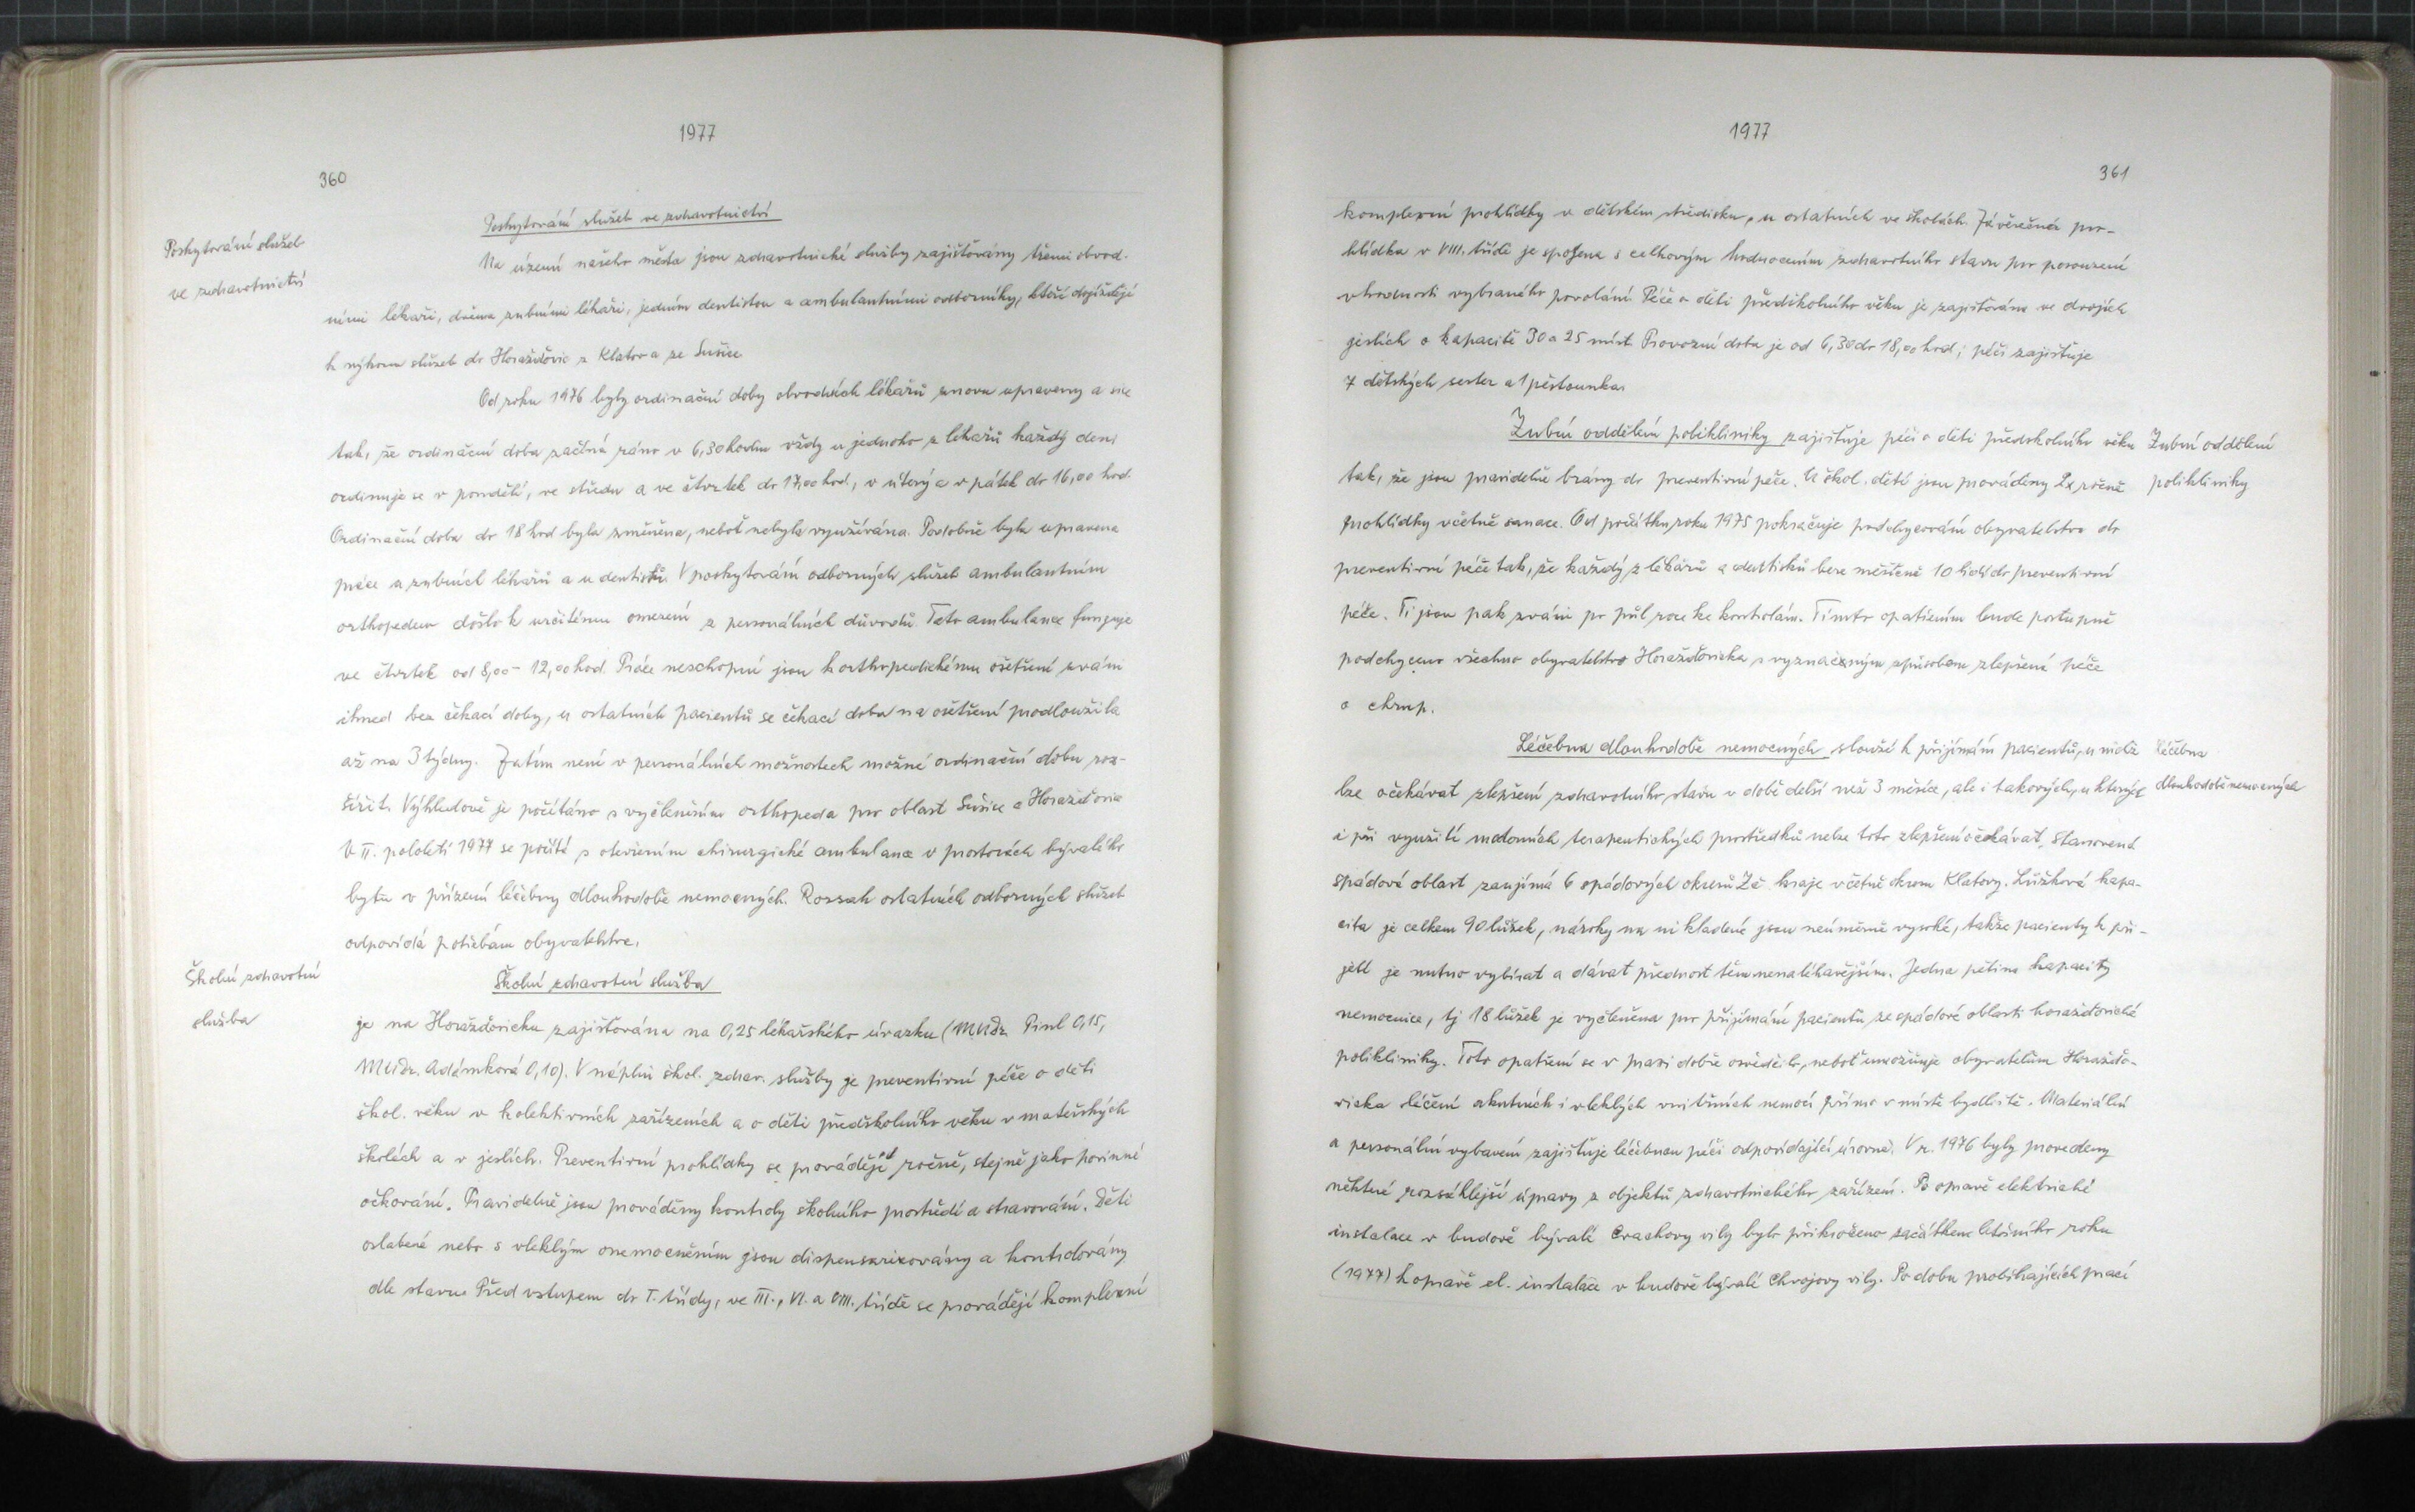 1977
360
Poskytování služeb
ve zdravotnictví
Poskytování služeb ve zdravotnictví
Na území našeho města jsou zdravotnické služby zajišťovány třemi obvod-
ními lékaři, dvěma zubními lékaři, jedním dentistou a ambulantními odborníky, kteří dojíždějí
k výkonu služeb do Horažďovic z Klatov a ze Sušice.
Od roku 1976 byly ordinační doby obvodních lékařů znovu upraveny a sice
tak, že ordinační doba začíná ráno v 6,30 hodin vždy u jednoho z lékařů každý den;
ordinuje se v pondělí, ve středu a ve čtvrtek do 17,00 hod, v úterý a v pátek do 16,00 hod.
Ordinační doba do 18 hod byla změněna, neboť nebyla využívána. Podobně byla upravena
práce u zubních lékařů a u dentistů. V poskytování odborných služeb ambulantním
orthopedem došlo k určitému omezení z personálních důvodů. Tato ambulance funguje
ve čtvrtek od 8,00 - 12,00 hod. Práce neschopní jsou k orthopedickému ošetření zváni
ihned bez čekací doby, u ostatních pacientů se čekací doba na ošetření prodloužila
až na 3 týdny. Zatím není v personálních možnostech možné ordinační dobu roz-
šířit. Výhledově je počítáno s vyčleněním orthopeda pro oblast Sušice a Horažďovic
V II. pololetí 1977 se počítá s otevřením chirurgické ambulance v prostorách bývalého
bytu v přízemí léčebny dlouhodobě nemocných. Rozsah ostatních odborných služeb
odpovídá potřebám obyvatelstva.
Školní zdravotní
služba
Školní zdravotní služba
je na Horažďovicku zajišťována na 0,25 lékařského úvazku (MUDr. Pinl 0,15,
MUDr. Adámková 0,10). V náplni škol. zdrav. služby je preventivní péče o děti
škol. věku v kolektivních zařízeních a o děti předškolního věku v mateřských
školách a v jeslích. Preventivní prohlídky se provádějí ročně, stejně jako povinné
očkování. Pravidelně jsou prováděny kontroly školního prostředí a stravování. Děti
oslabené nebo s vleklým onemocněním jsou dispensarizovány a kontrolovány
dle stavu. Před vstupem do I. třídy, ve III., VI. a VIII. třídě se provádějí komplexní
1977
361
komplexní prohlídky v dětském středisku, u ostatních ve školách. Závěrečná pro-
hlídka v VIII. třídě je spojena s celkovým hodnocením zdravotního stavu pro posouzení
vhodnosti vybraného povolání. Péče o děti předškolního věku je zajišťována ve dvojích
jeslích o kapacitě 30 a 25 míst. Provozní doba je od 6,30 do 18,00 hod; péči zajišťuje
7 dětských sester a 1 pěstounka.
Zubní oddělení polikliniky zajišťuje péči o děti předškolního věku
Zubní oddělení
polikliniky
tak, že jsou pravidelně brány do preventivní péče. U škol. dětí jsou prováděny 2x ročně
prohlídky včetně sanace. Od počátku roku 1975 pokračuje podchycování obyvatelstva do
preventivní péče tak, že každý z lékařů a dentistů bere měsíčně 10 lidí do preventivní
péče. Ti jsou pak zváni po půl roce ke kontrolám. Tímto opatřením bude postupně
podchyceno všechno obyvatelstvo Horažďovicka s význačným způsobem zlepšení péče
o chrup.
Léčebna dlouhodobě nemocných slouží k přijímání pacientů, u nichž
Léčebna
dlouhodobě nemocných
lze očekávat zlepšení zdravotního stavu v době delší než 3 měsíce, ale i takových, u kterých
i při využití moderních terapeutických prostředků nelze toto zlepšení očekávat. Stanovená
spádová oblast zaujímá 6 spádových okresů Zč kraje včetně okresu Klatovy. Lůžková kapa-
cita je celkem 90 lůžek, nároky na ni kladené jsou neúměrně vysoké, takže pacienty k při-
jetí je nutno vybírat a dávat přednost těm nenaléhavějším. Jedna pětina kapacity
nemocnice, tj 18 lůžek je vyčleněna pro přijímání pacientů ze spádové oblasti horažďovické
polikliniky. Toto opatření se v praxi dobře osvědčilo, neboť umožňuje obyvatelům Horažďo-
vicka léčení akutních i vleklých vnitřních nemocí přímo v místě bydliště. Materiální
a personální vybavení zajišťuje léčebnou péči odpovídající úrovně. V r. 1976 byly provedeny
některé rozsáhlejší úpravy z objektů zdravotnického zařízení. Po opravě elektrické
instalace v budově bývalé Crachovy vily bylo přikročeno začátkem letošního roku
(1977) k opravě el. instalace v budově bývalé Chvojovy vily. Po dobu probíhajících prací